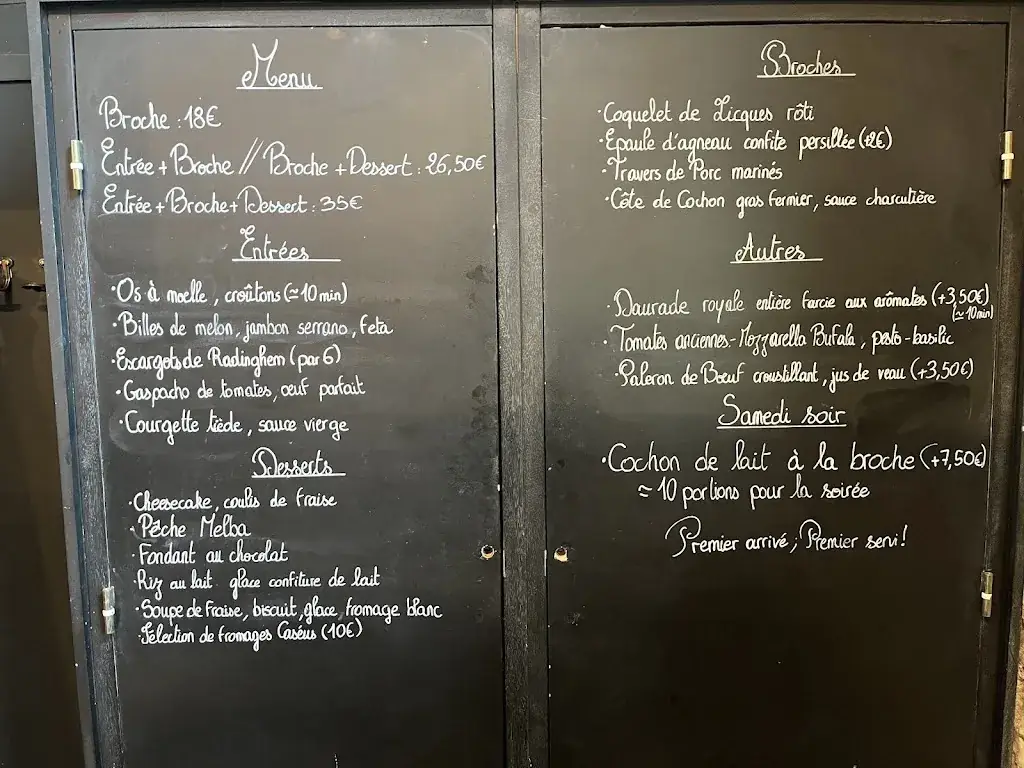 Menu
Broche : 18€
Entrée + Broche // Broche + Dessert : 26,50€
Entrée + Broche + Dessert : 35€
Entrées
·Os à moelle, croûtons (≃ 10 min)
·Billes de melon, jambon serrano, feta
·Escargots de Radinghem (par 6)
·Gaspacho de tomates, œuf parfait
·Courgette tiède, sauce vierge
Desserts
·Cheesecake, coulis de fraise
·Pêche Melba
·Fondant au chocolat
·Riz au lait glace confiture de lait
·Soupe de fraise, biscuit, glace fromage blanc
·Sélection de fromages Caséus (10€)
Broches
·Coquelet de Licques rôti
·Epaule d'agneau confite persillée (+2€)
·Travers de Porc marinés
·Côte de Cochon gras fermier, sauce charcutière
Autres
·Daurade royale entière farcie aux arômates (+3,50€)
(≃ 10 min)
·Tomates anciennes - Mozzarella Bufala, pesto-basilic
·Paleron de Bœuf croustillant, jus de veau (+3,50€)
Samedi soir
·Cochon de lait à la broche (+7,50€)
≃ 10 portions pour la soirée
Premier arrivé, Premier servi!